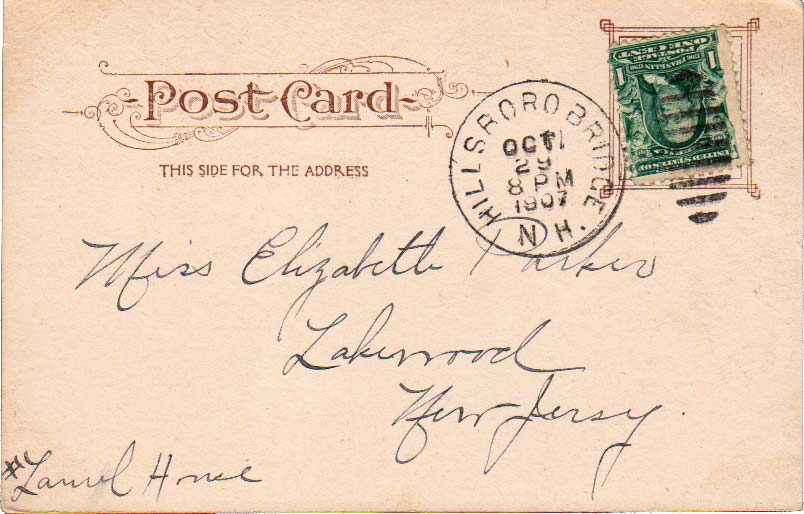 Post Card
THIS SIDE FOR THE ADDRESS
HILLSBORO BRIDGE
OCT
29
8 PM
1907
N H.
ONE CENT
POSTAGE
1 1
UNITED STATES OF
AMERICA
Miss Elizabeth Parker
Lakewood
New Jersy.
Laurel House